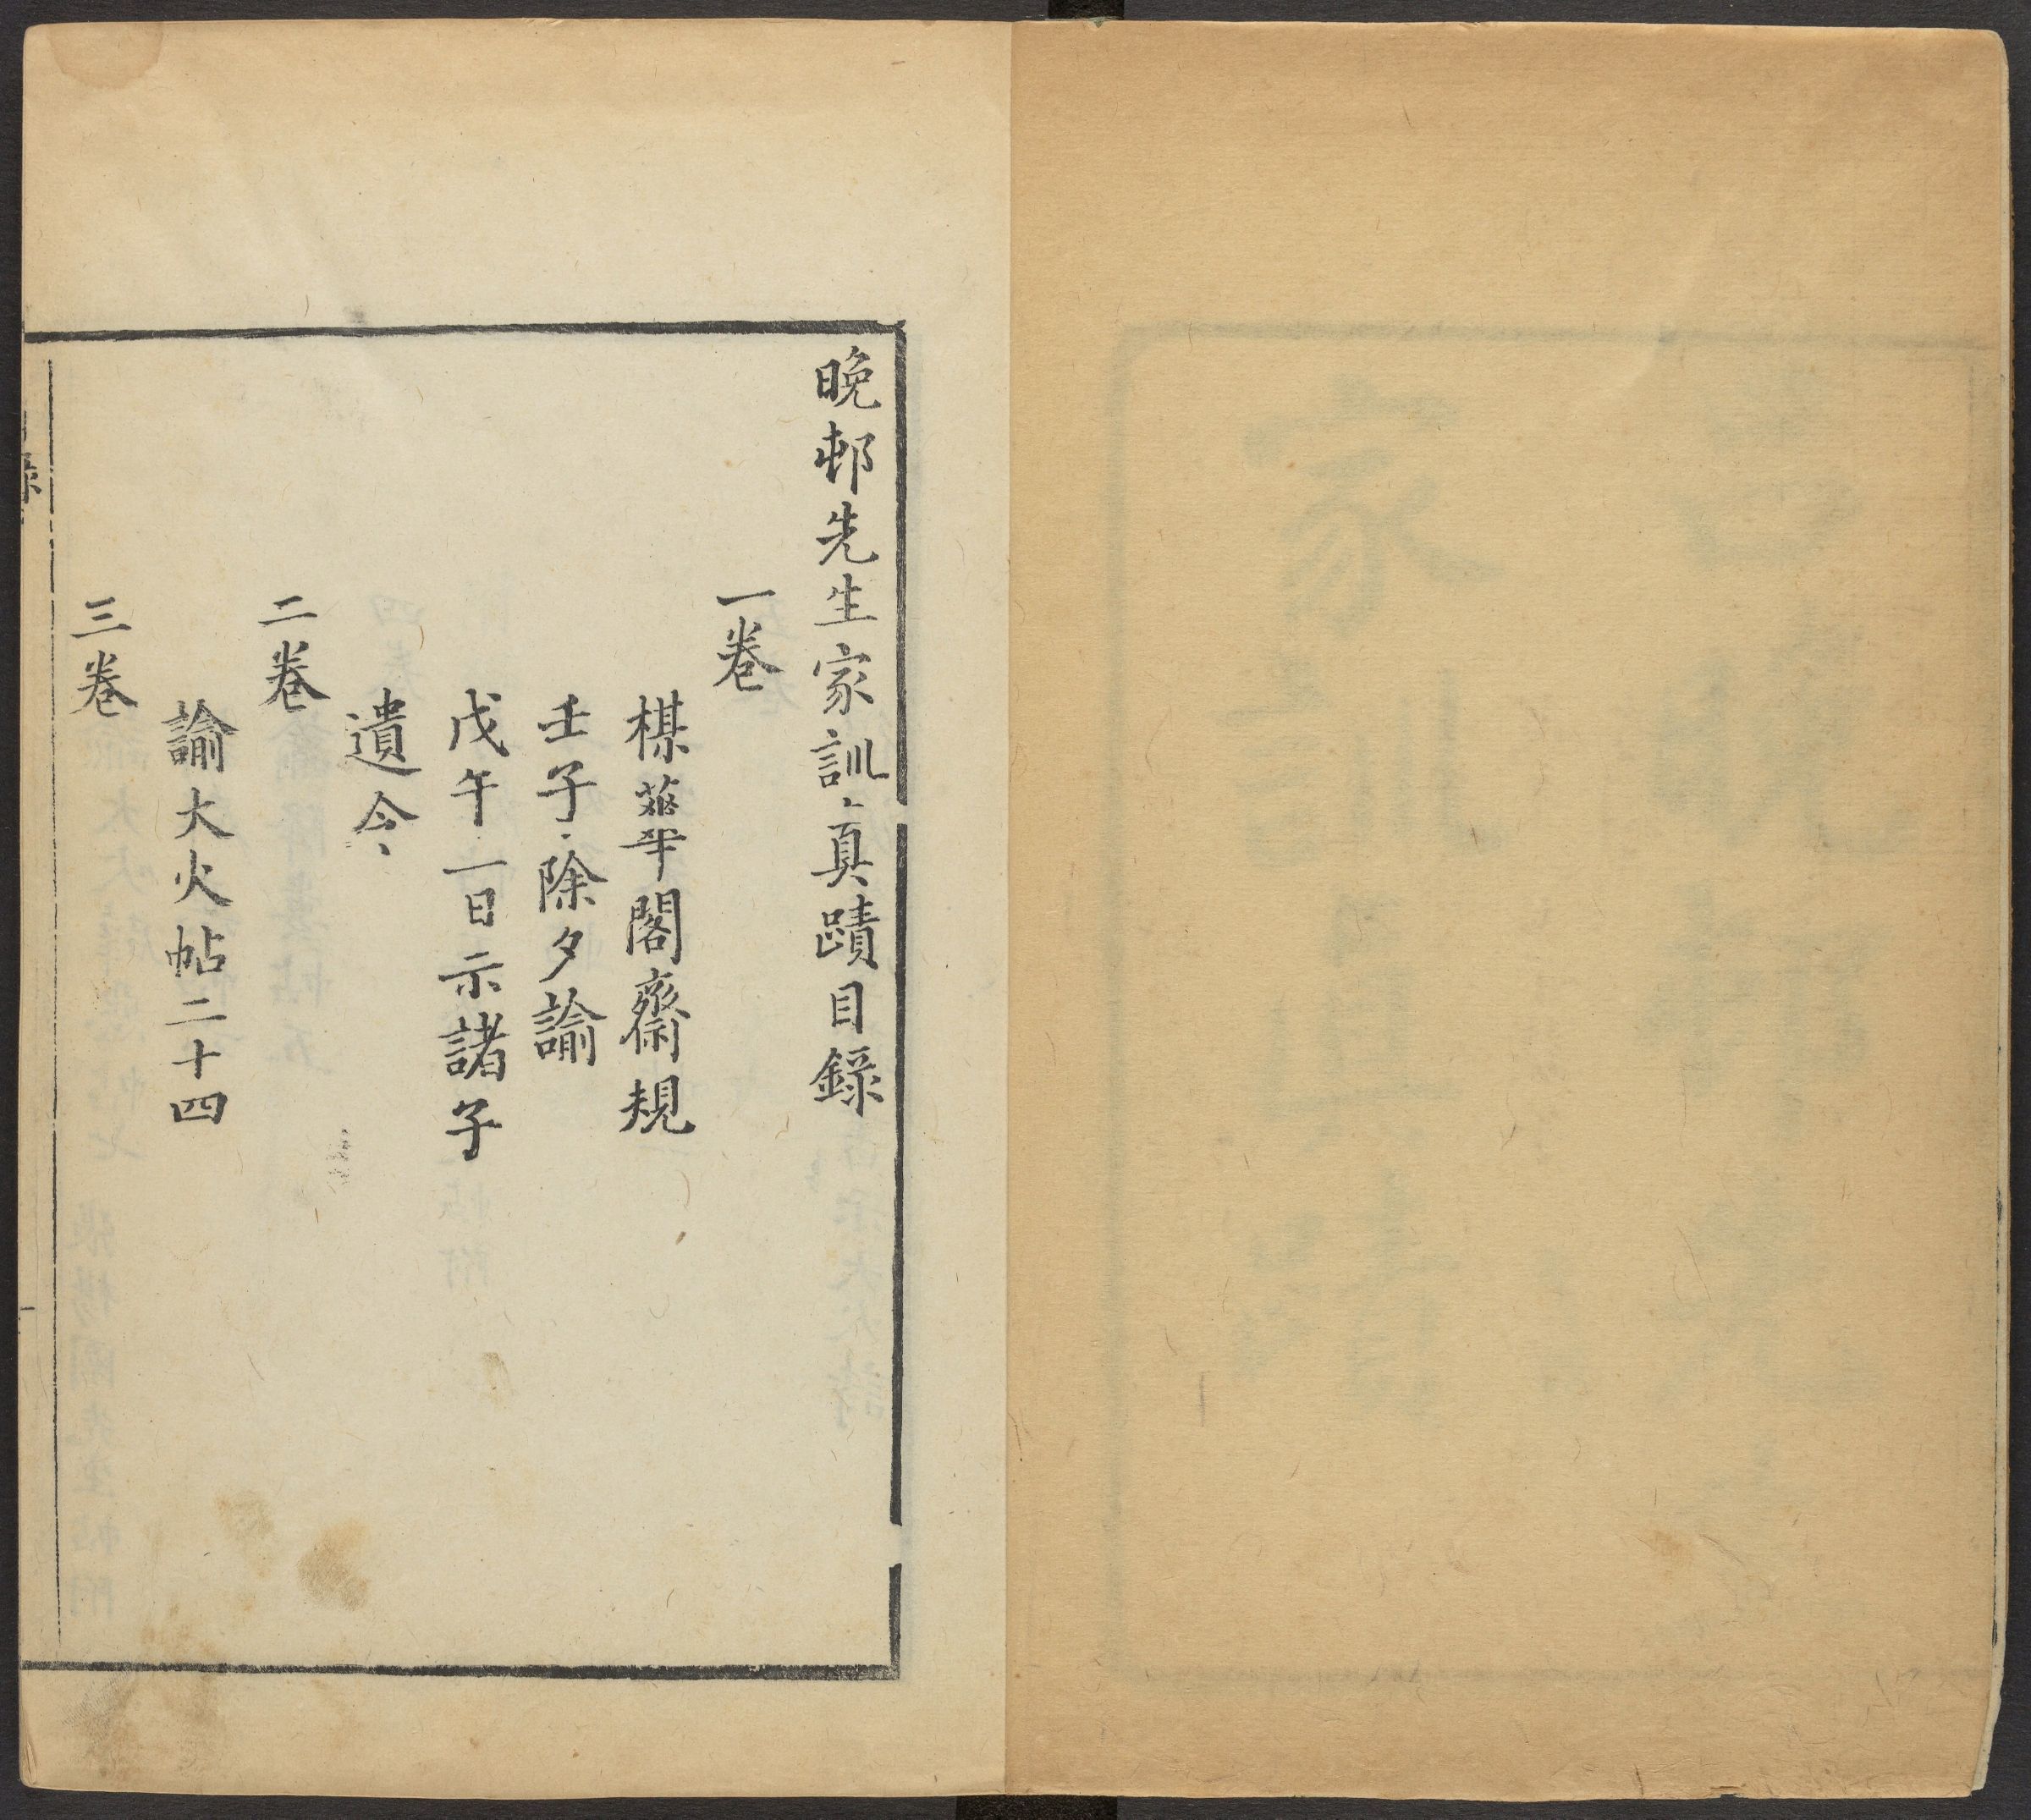 晚邨先生家訓真蹟目錄
一卷
楳華閣齋規
壬子除夕諭
戊午一日示諸子
遺令
二卷
諭大火帖二十四
三卷